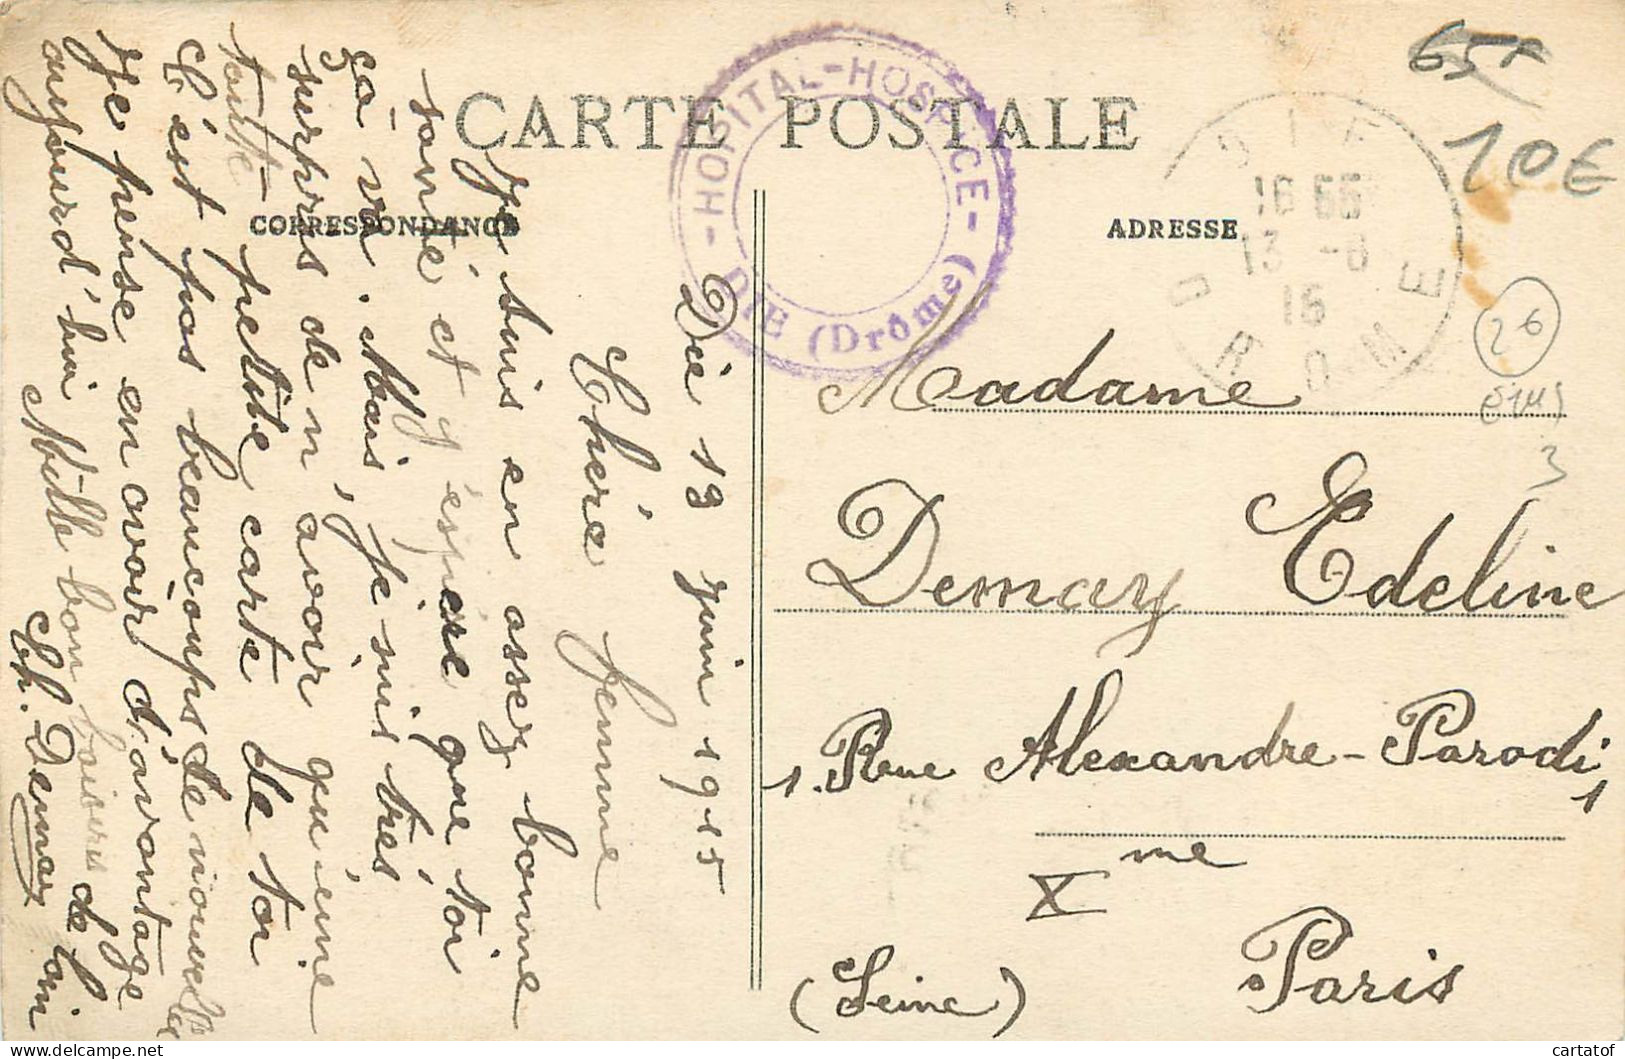 CARTE POSTALE
CORRESPONDANCE
ADRESSE
-HOPITAL-HOSPICE-
DIE (Drôme)
DIE
16 55
13 -6
15
DROME
65
10€
26
3
Die 13 juin 1915
Chère femme
Je suis en assez bonne
santé et j'éspère que toi
ça va. Mais, je suis très
surpris de n'avoir qu'eine
toutte petite carte de toi
C'est pas beaucoups de nouvelles
Je pense en avoir d'avantage
aujourd'hui Mille bon baisers de loin
Ch. Demay
Madame
Demay Edeline
1. Rue Alexandre-Parodi, 1
Xme
Paris
(Seine)
cartatof